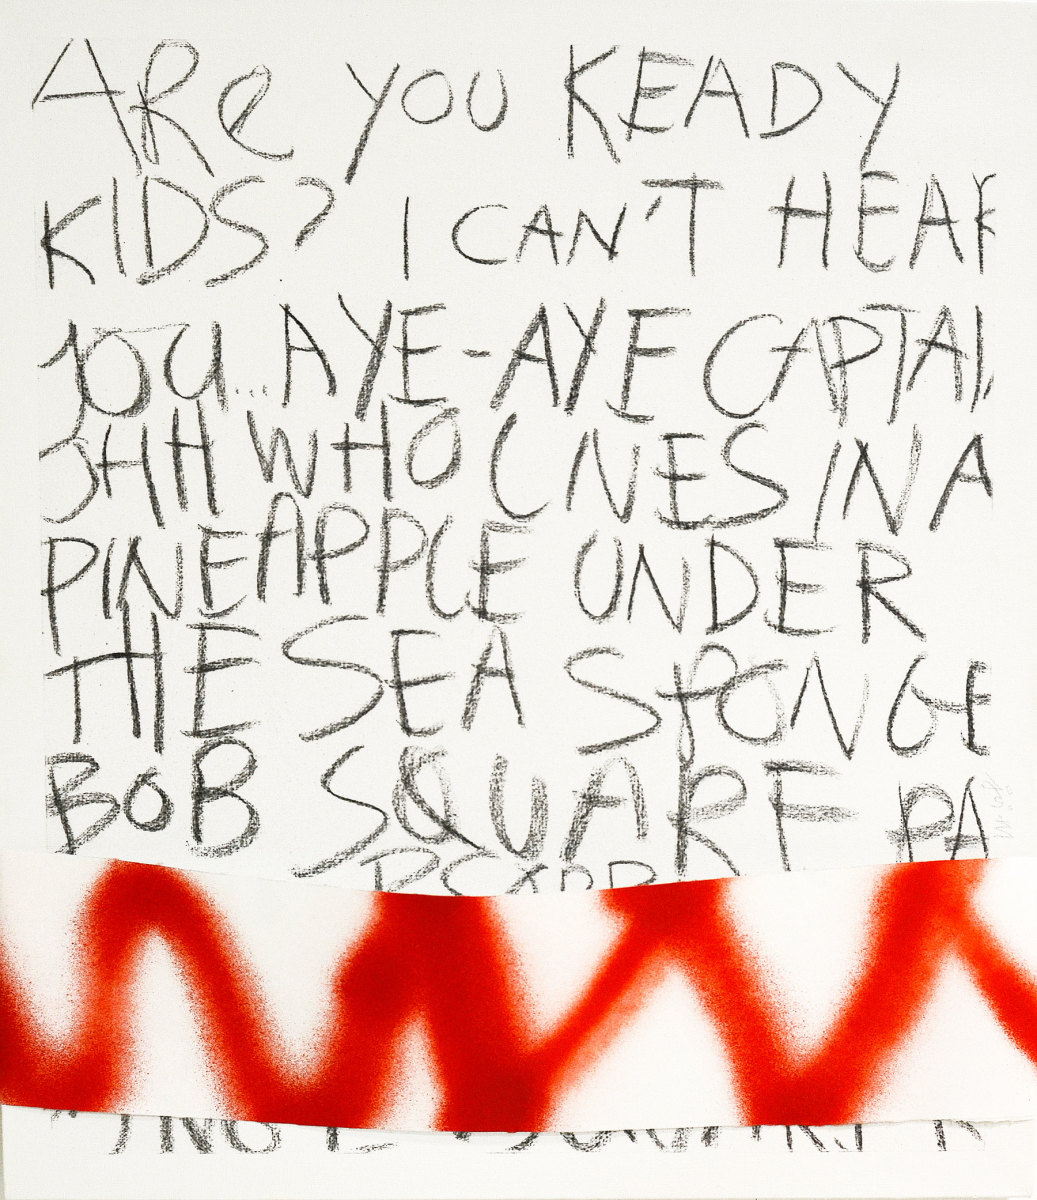 ARe YOU KEADY
KIDS? I CAN'T HEAR
YOU... AYE-AYE CAPTAI
OHH WHO LIVES IN A
PINEAPPLE UNDER
THE SEA SPONGE
BOB SQUARE PA